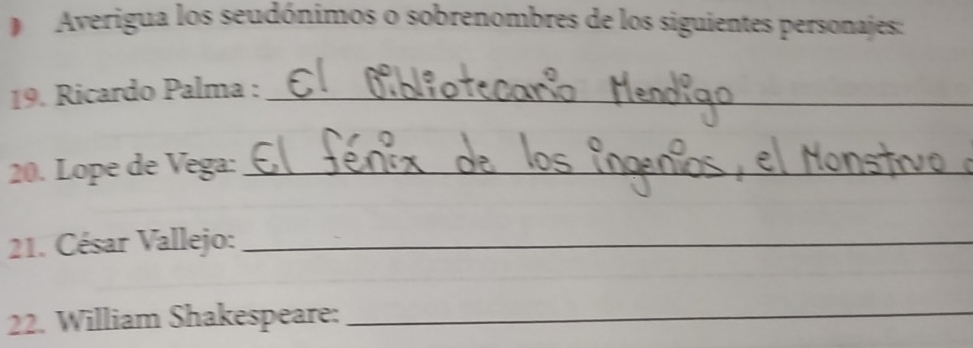 Averigua los seudónimos o sobrenombres de los siguientes personajes:
19. Ricardo Palma : El Bibliotecario Mendigo
20. Lope de Vega: El fénix de los ingenios, el Monstruo
21. César Vallejo:
22. William Shakespeare: